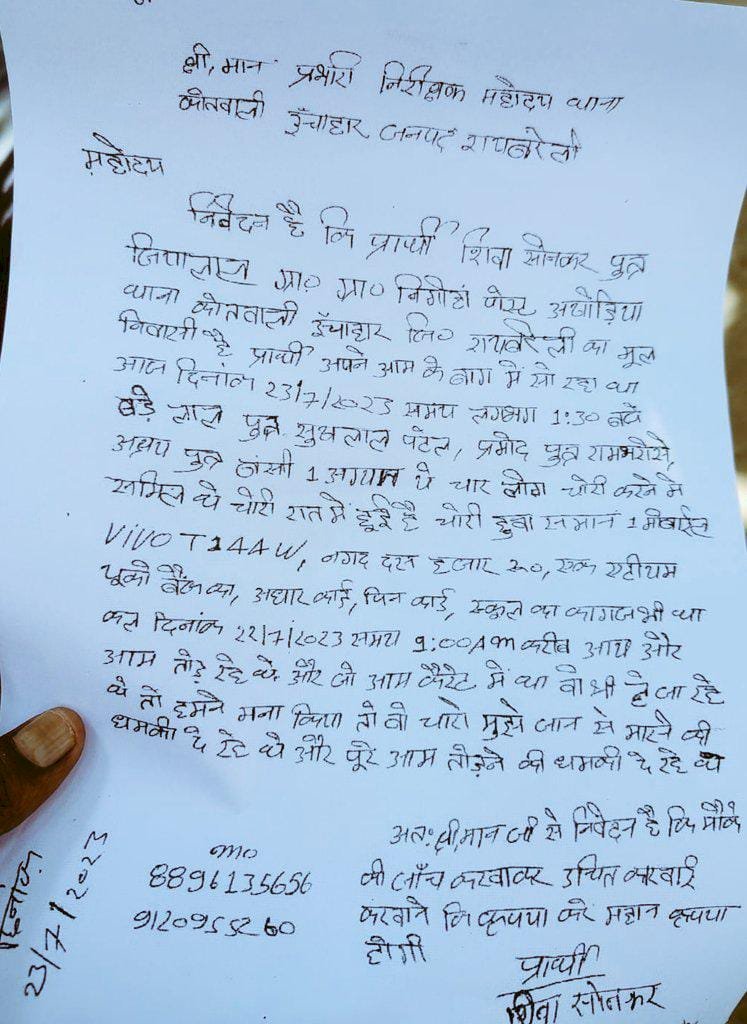 श्री,मान प्रभारी निरीक्षक महोदय थाना
कोतवाली ऊँचाहार जनपद रायबरेली
महोदय
निवेदन है कि प्रार्थी शिवा सोनकर पुत्र
जियालाल ग्रा० प्रा० पोस्ट
थाना कोतवाली ऊँचाहार जि० रायबरेली का मूल
निवासी है प्रार्थी अपने आम के बाग में सो रहा था
आज दिनांक 23/7/2023 समय लगभग 1:30 बजे
बड़े लाल पुत्र सुखलाल पटेल, प्रमोद पुत्र रामभरोसे,
पुत्र बंसी 1 अग्यात ये चार लोग चोरी करने में
सामिल थे चोरी रात में हुई है चोरी हुवा समान 1 मोबाईल
VIVO T1 44W, नगद दस हजार रू०, एक एटीयम
यूको बैंक का, अधार कार्ड, पिन कार्ड, स्कूल का कागज भी था
कल दिनांक 22/7/2023 समय 9:00 AM करीब आय और
आम तोड़ रहे थे और जो आम कैरेट में था वो भी ले जा रहे
थे तो हमने मना किया तो वो चारो मुझे जान से मारने की
धमकी दे रहे थे और पूरे आम तोड़ने की धमकी दे रहे थे
अतः श्री,मान जी से निवेदन है कि मौके
की जाँच करवाकर उचित करवाई
करवाने कि कृपया करे महान कृपया
होगी
mo
8896135656
9120955260
दिनांक
23/7/2023
प्रार्थी
शिवा सोनकर